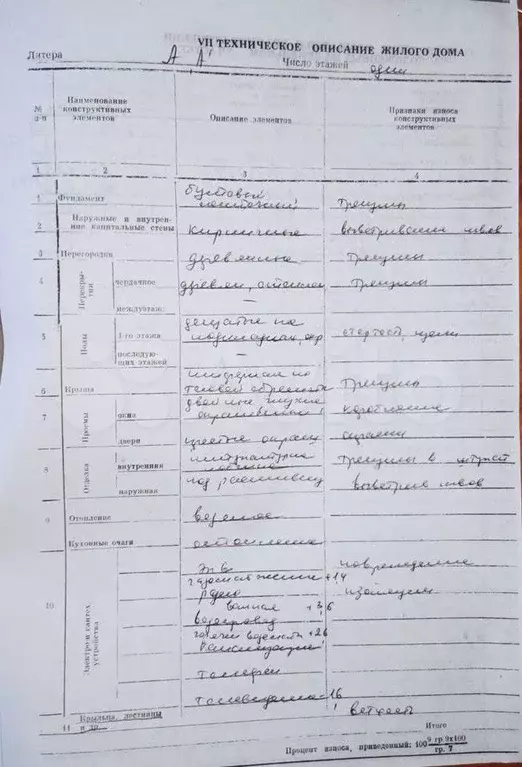 VII ТЕХНИЧЕСКОЕ ОПИСАНИЕ ЖИЛОГО ДОМА
Литера А А' Число этажей один
№ п-п Наименование конструктивных элементов Описание элементов Признаки износа конструктивных элементов
1 2 3 4
1 Фундамент бутовый ленточный Трещины
2 Наружные и внутренние капитальные стены Кирпичные выветривание швов
3 Перегородки древянные Трещины
4 Перекрытия чердачное древян, отеплен Трещины
междуэтаж. —
5 Полы 1-го этажа дощатые по
последующих этажей —
6 Крыша шиферная по тесовой обрешетке Трещины
7 Проемы окна двойные глухие коробление
двери окраски
8 Отделка внутренняя штукатурка Трещины в
наружная под расшивку выветрив швов
9 Отопление
Кухонные очаги
10 Электро и сантех. устройства
Эл. повреждение
+14
радио изоляции
ванная + 3,6
водопровод
+26
канализация
телефон
телевидение 16
11 Крыльца, лестницы и др. ветхость
Итого
Процент износа, приведенный: 100 9 гр 9х100 гр. 7